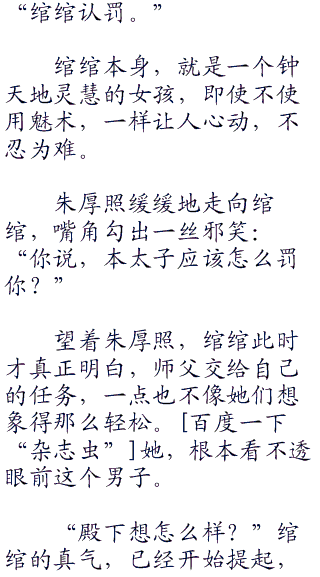 “绾绾认罚。”
绾绾本身，就是一个钟
天地灵慧的女孩，即使不使
用魅术，一样让人心动，不
忍为难。
朱厚照缓缓地走向绾
绾，嘴角勾出一丝邪笑：
“你说，本太子应该怎么罚
你？”
望着朱厚照，绾绾此时
才真正明白，师父交给自己
的任务，一点也不像她们想
象得那么轻松。[百度一下
“杂志虫”]她，根本看不透
眼前这个男子。
“殿下想怎么样？”绾
绾的真气，已经开始提起，